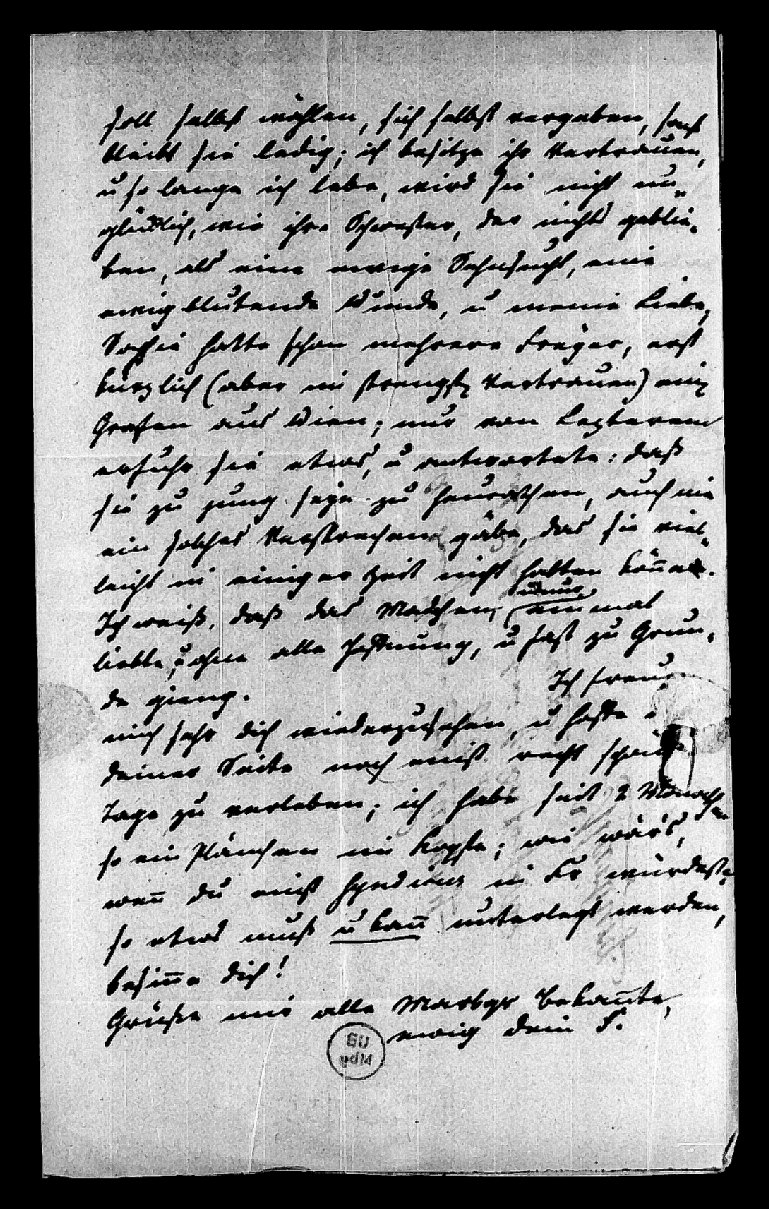 soll selbst wählen, sich selbst vergeben, sonst
bleibt sie ledig; ich besitze ihr Vertrauen,
u so lange ich lebe, wird sie nicht un-
glücklich, wie ihre Schwester, der nichts geblie-
ben, als eine ewige Sehnsucht, eine
ewig blutende Wunde, u meine Liebe,
Sophie hatte schon mehrere Freyer, erst
kürzlich (aber im strengsten Vertrauen) einen
Grafen aus Wien; nur von Lezterem
erfuhr sie etwas, u antwortete: daß
sie zu jung seye zu heurathen, auch nie
ein solches Versprechen gäbe, das sie viel-
leicht in einiger Zeit nicht halten könne.
Ich weiß, daß das Mädchen, einmal
liebte, u ohne alle Hoffnung, u fast zu Grun-
de gieng. Ich freue
mich sehr dich wiederzusehen, u hoffe
deiner Seite noch recht schöne
Tage zu verleben; ich habe seit 2 Monathen
so ein Plänchen im Kopfe; wie wär's,
wenn du in würdest,
so etwas muß u kann unterlegt werden,
besinne dich!
Grüße mir alle Marbgr Bekannte,
ewig dein F.
UB
Mbg